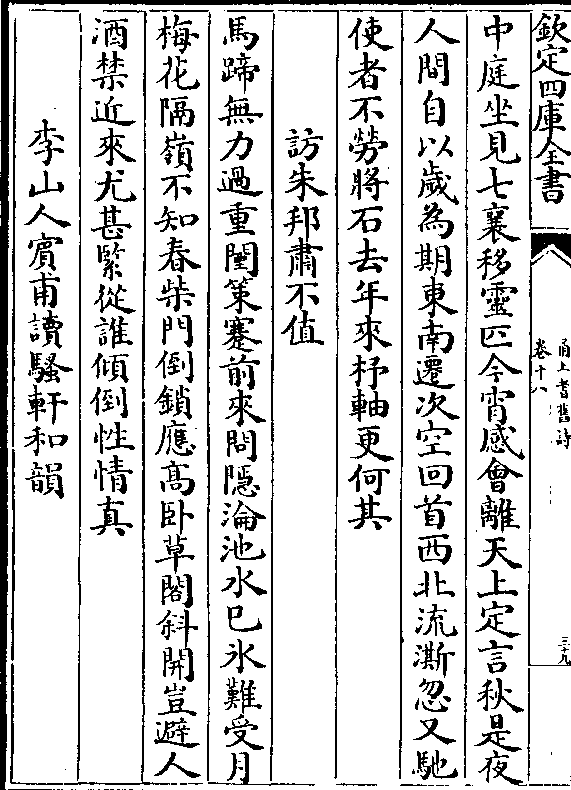 欽定四庫全書
甬上耆舊詩
卷十八
三十九
中庭坐見七襄移靈匹今宵感會離天上定言秋是夜
人間自以歲為期東南遷次空回首西北流澌忽又馳
使者不勞將石去年來杼軸更何其
訪朱邦肅不值
馬蹄無力過重闉策蹇前來問隱淪池水已氷難受月
梅花隔嶺不知春柴門倒鎖應髙卧草閣斜開豈避人
酒禁近來尤甚緊從誰傾倒性情真
李山人賔甫讀騷軒和韻